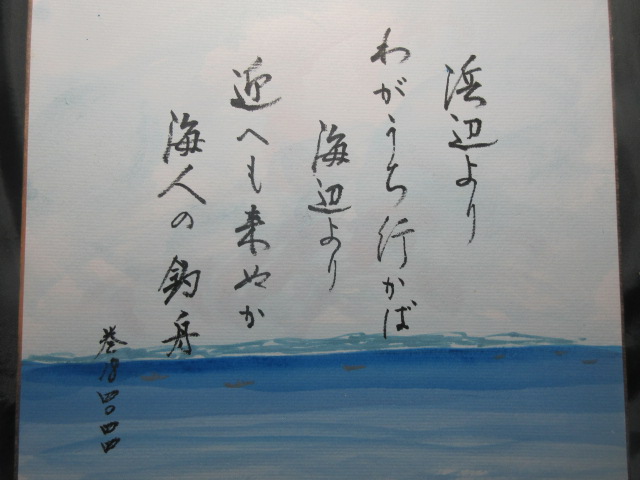 浜辺より
わがうち行かば
海辺より
迎へも来ぬか
海人の釣舟
巻18 四〇四四